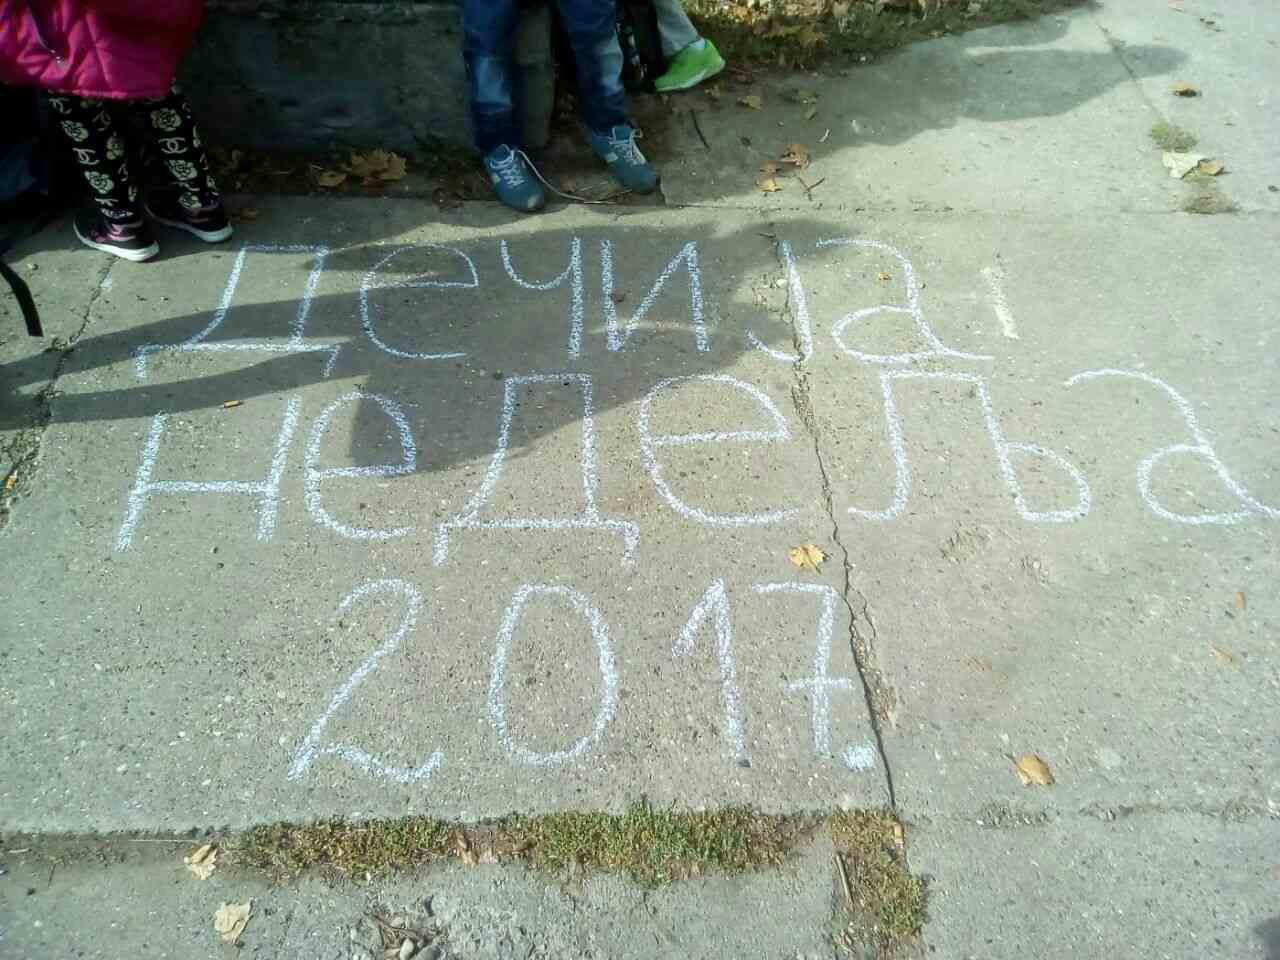 Дечија
недеља
2017.